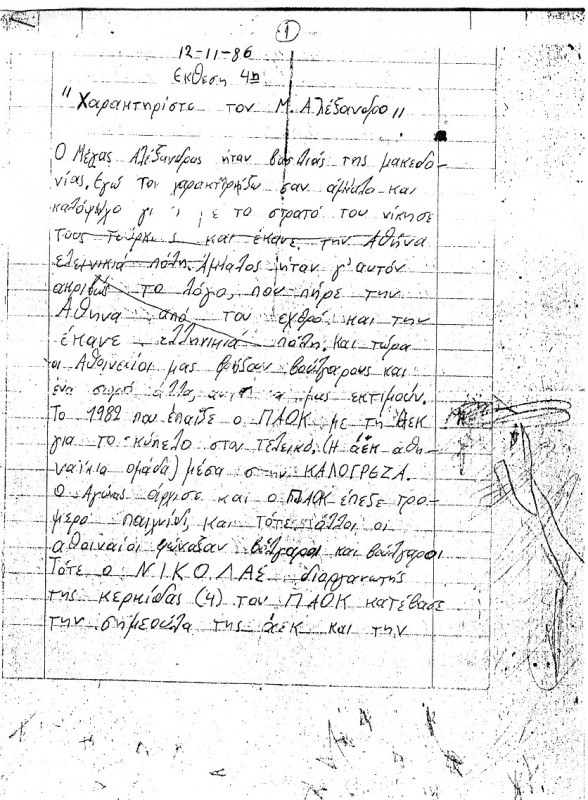 1
12-11-86
Εκθεση 4η
"Χαρακτηρίστε τον Μ. Αλέξανδρο"
Ο Μέγας Αλέξανδρος ήταν βασιλιάς της μακεδο-
νίας. Εγώ τον χαρακτηρίζω σαν άμαλο και
με το στρατό του νίκησε
τους τούρκους και έκανε την Αθήνα
ελεννικιά πόλη. Άμαλος ήταν γι' αυτόν
ακριβώς το λόγο, που πήρε την
Αθηνα από τον εχθρό και την
έκανε ελληνικιά πόλη. Και τώρα
οι Αθηνείοι μας βρίζουν βούλγαρους και
ένα σωρό άλλα, αντί να μας εκτιμούν.
Το 1982 που έπαιζε ο ΠΑΟΚ με τη άεκ
για το κύπελο στον τελεικό. (Η άεκ αθη-
ναίικια ομάδα) μέσα στην ΚΑΛΟΓΡΕΖΑ.
Ο Αγώνας άρχισε και ο ΠΑΟΚ έπεζε τρο-
μερο παιχνίδι, και τότε άλλοι οι
αθοιναίοι φώναξαν βούλγαροι και βούλγαροι
Τότε ο ΝΙΚΟΛΑΣ διοργανωτής
της κερκίδας (4) του ΠΑΟΚ κατέβασε
την σημεούλα της άεκ και την